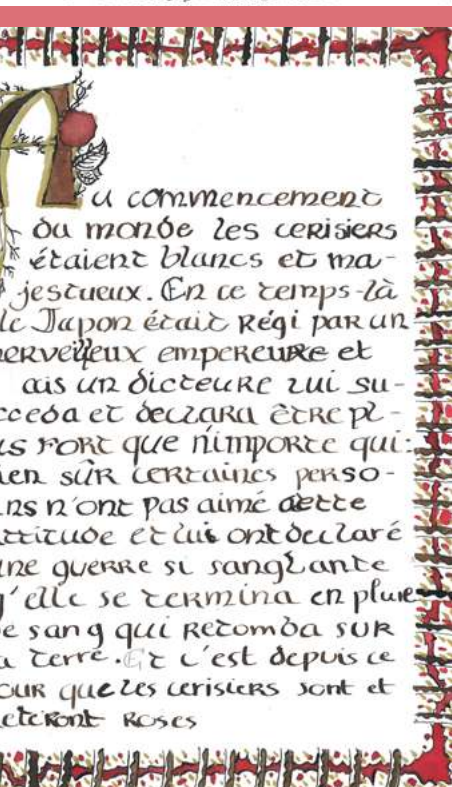 Au commencement
du monde les cerisiers
étaient blancs et ma-
jestueux. En ce temps-là
le Japon était Régi par un
merveilleux empereure et
ais un dicteure lui su-
cceda et declara être pl-
us fort que nimporte qui:
ien sûr certaines perso-
ns n'ont pas aimé cette
ttitude et lui ont declaré
ne guerre si sanglante
'elle se termina en pluie
e sang qui retomba sur
a terre. Et c'est depuis ce
our que les cerisiers sont et
eteront Roses